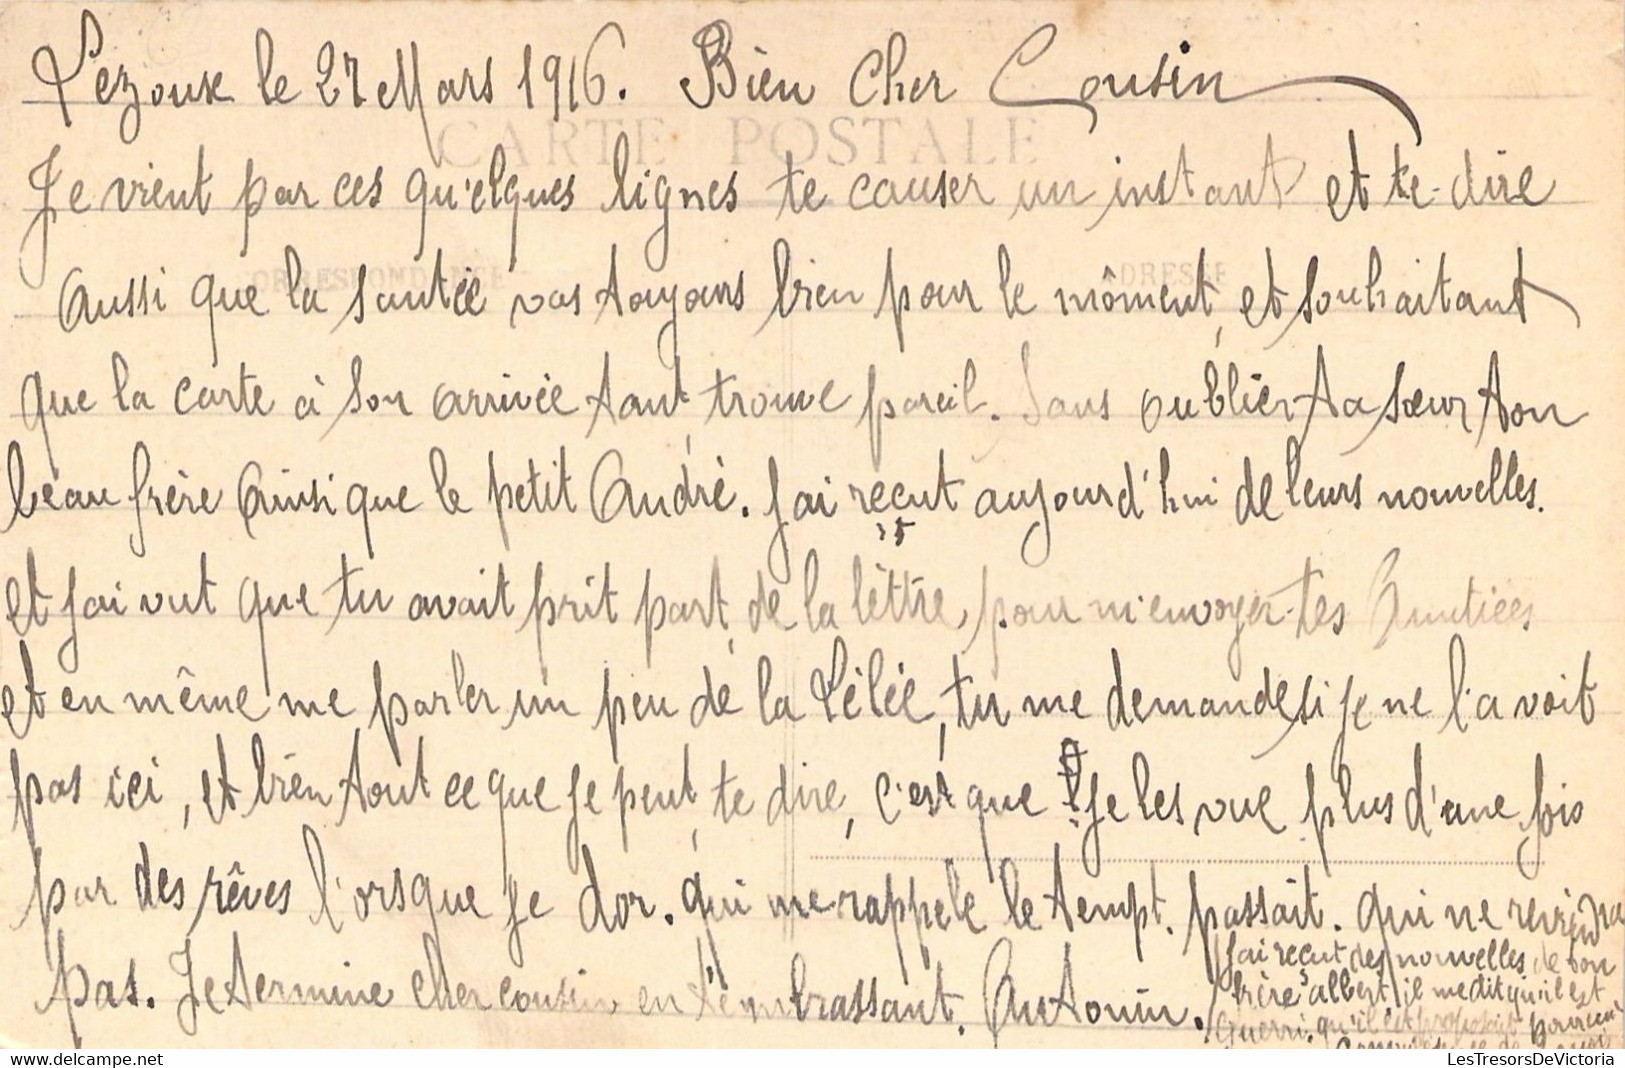 Lezoux le 27 Mars 1916. Bien Cher Cousin
CARTE POSTALE
Je vient par ces qu'elques lignes te causer un instant et te dire
CORRESPONDANCE ADRESSE
Aussi que la santée vas toujours bien pour le môment, et souhaitant
que la carte à son arrivée tant trouve pareil. Sans oublier ta sœur ton
beau frère Ainsi que le petit André. J'ai reçut aujourd'hui de leurs nouvelles.
et j'ai vut que tu avait prit part, de la lèttre, pour m'envoyer tes Amitiées
et en même me parler un peu de la Lélée, tu me demande si je ne l'a voit
pas ici, et bien tout ce que je peut, te dire, c'est que je les vue plus d'une fois
par des rêves l'orsque je dor. qui me rappele le tempt. passait. qui ne reviendra
pas. Je termine cher cousin en t'embrassant. Antonin.
J'ai reçut des nouvelles de ton
frère albert, il me dit qu'il est
Guerri, qu'il est proposait pour un
LesTresorsDeVictoria
delcampe.net